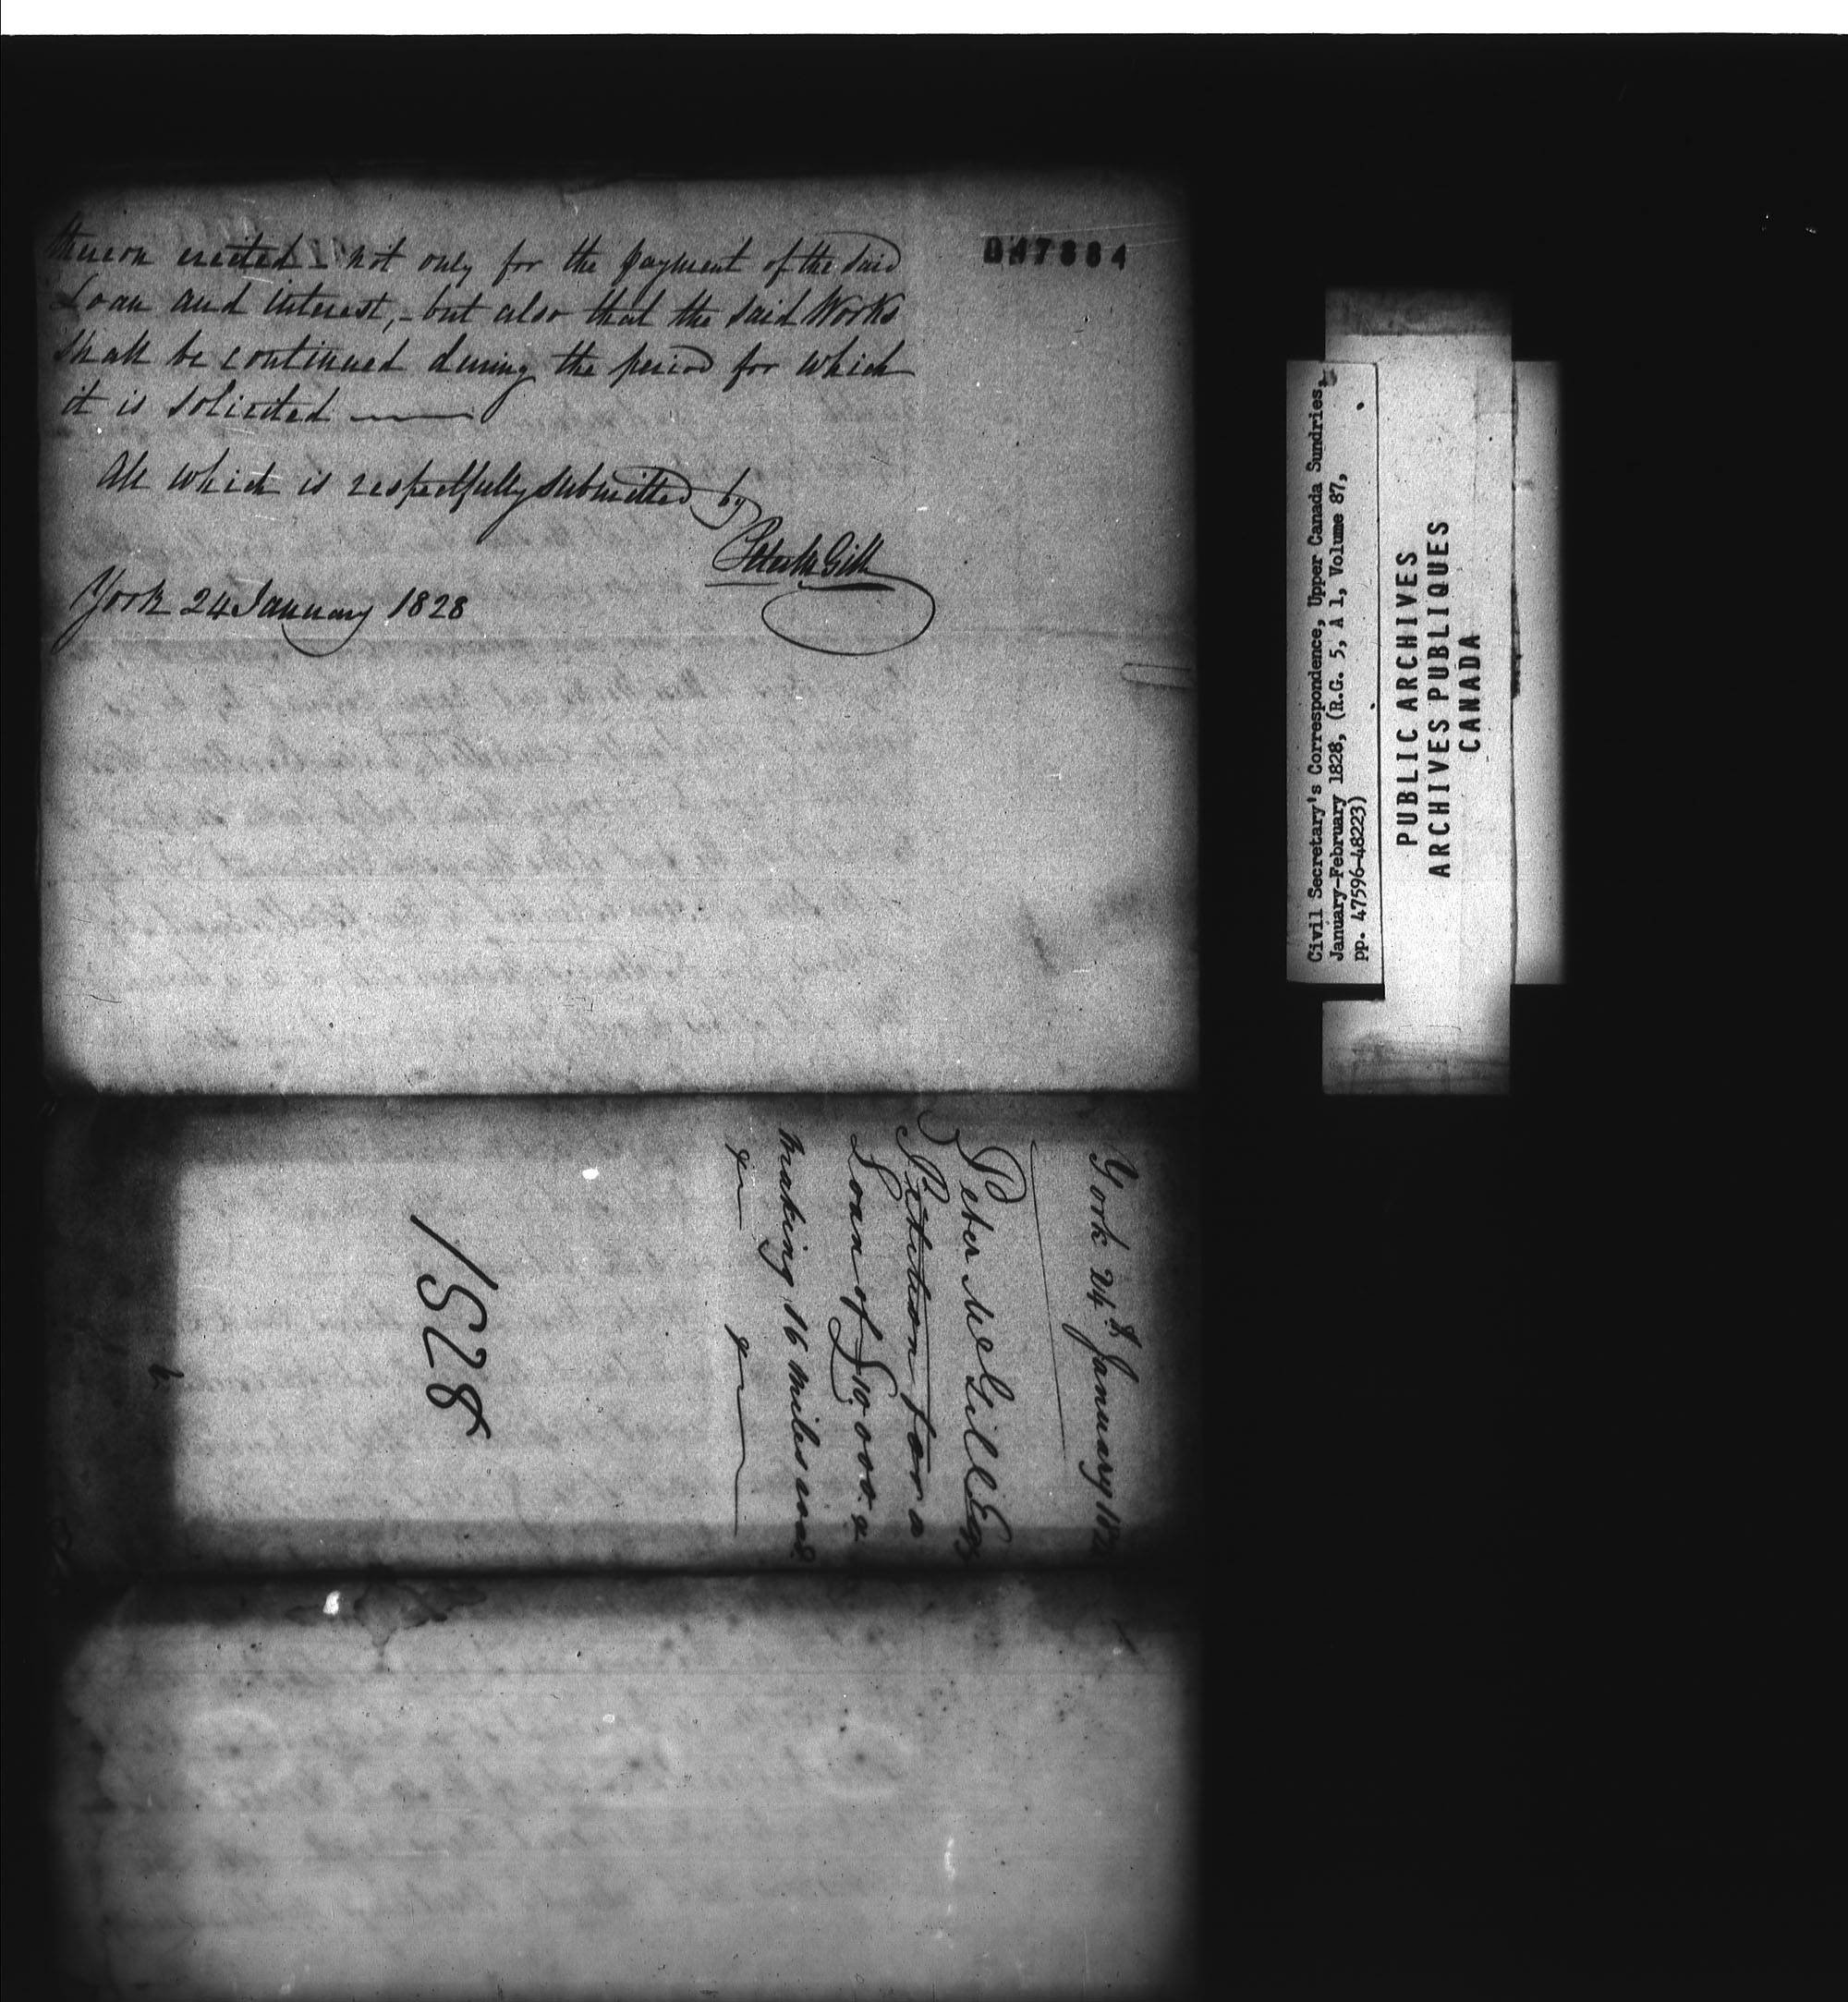 047884
thereon erected – not only for the payment of the said
Loan and interest, – but also that the said Works
shall be continued during the period for which
it is solicited
All which is respectfully submitted by
Peter McGill
York 24 January 1828
York 24th January 182
Peter McGill Esq
Petition for a
Loan of £10,000. &
making 16 miles road
1828
Civil Secretary's Correspondence, Upper Canada Sundries,
January-February 1828, (R.G. 5, A 1, Volume 87,
pp. 47596-48223)
PUBLIC ARCHIVES
ARCHIVES PUBLIQUES
CANADA